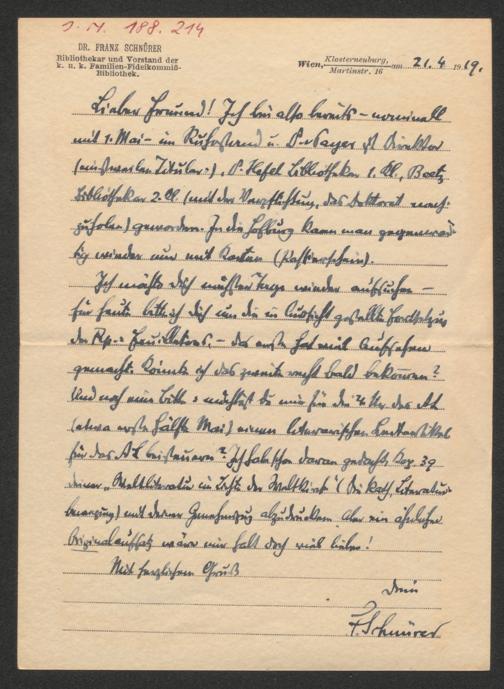 J. N. 188.214
DR. FRANZ SCHNÜRER
Bibliothekar und Vorstand der
k. u. k. Familien-Fideikommiß-
Bibliothek.
Wien, Klosterneuburg, Martinstr. 16 am 21.4 1919.
Lieber Freund! Ich bin also bereits – nominell
mit 1. Mai – im Ruhestand u. Payer ist Direktor
(einstweilen Titular-), Hefel Bibliothekar 1. Kl.,
Bibliothekar 2. Kl (mit der Verpflichtung, das Doktorat nach-
zuholen) geworden. In die Hofburg kann man gegenwär-
tig wieder nur mit Karten (Passierschein).
Ich möchte dich nächster Tage wieder aufsuchen –
für heute bitte ich dich um die in Aussicht gestellte Fortsetzung
des Rp.- Feuilletons – das erste hat viel Aufsehen
gemacht. Könnte ich das zweite recht bald bekommen?
Und noch eine Bitte: möchtest du mir für die Nr. des AL
(etwa erste Hälfte Mai) einen literarischen Leitartikel
für das AL beisteuern? Ich habe schon daran gedacht, Kap. 39
deiner „Weltliteratur im Lichte der Weltkirche" (Die kath. Literatur-
bewegung) mit deiner Genehmigung abzudrucken. Aber ein ähnlicher
Originalaufsatz wäre mir halt doch viel lieber!
Mit herzlichem Gruß
Dein
F. Schnürer